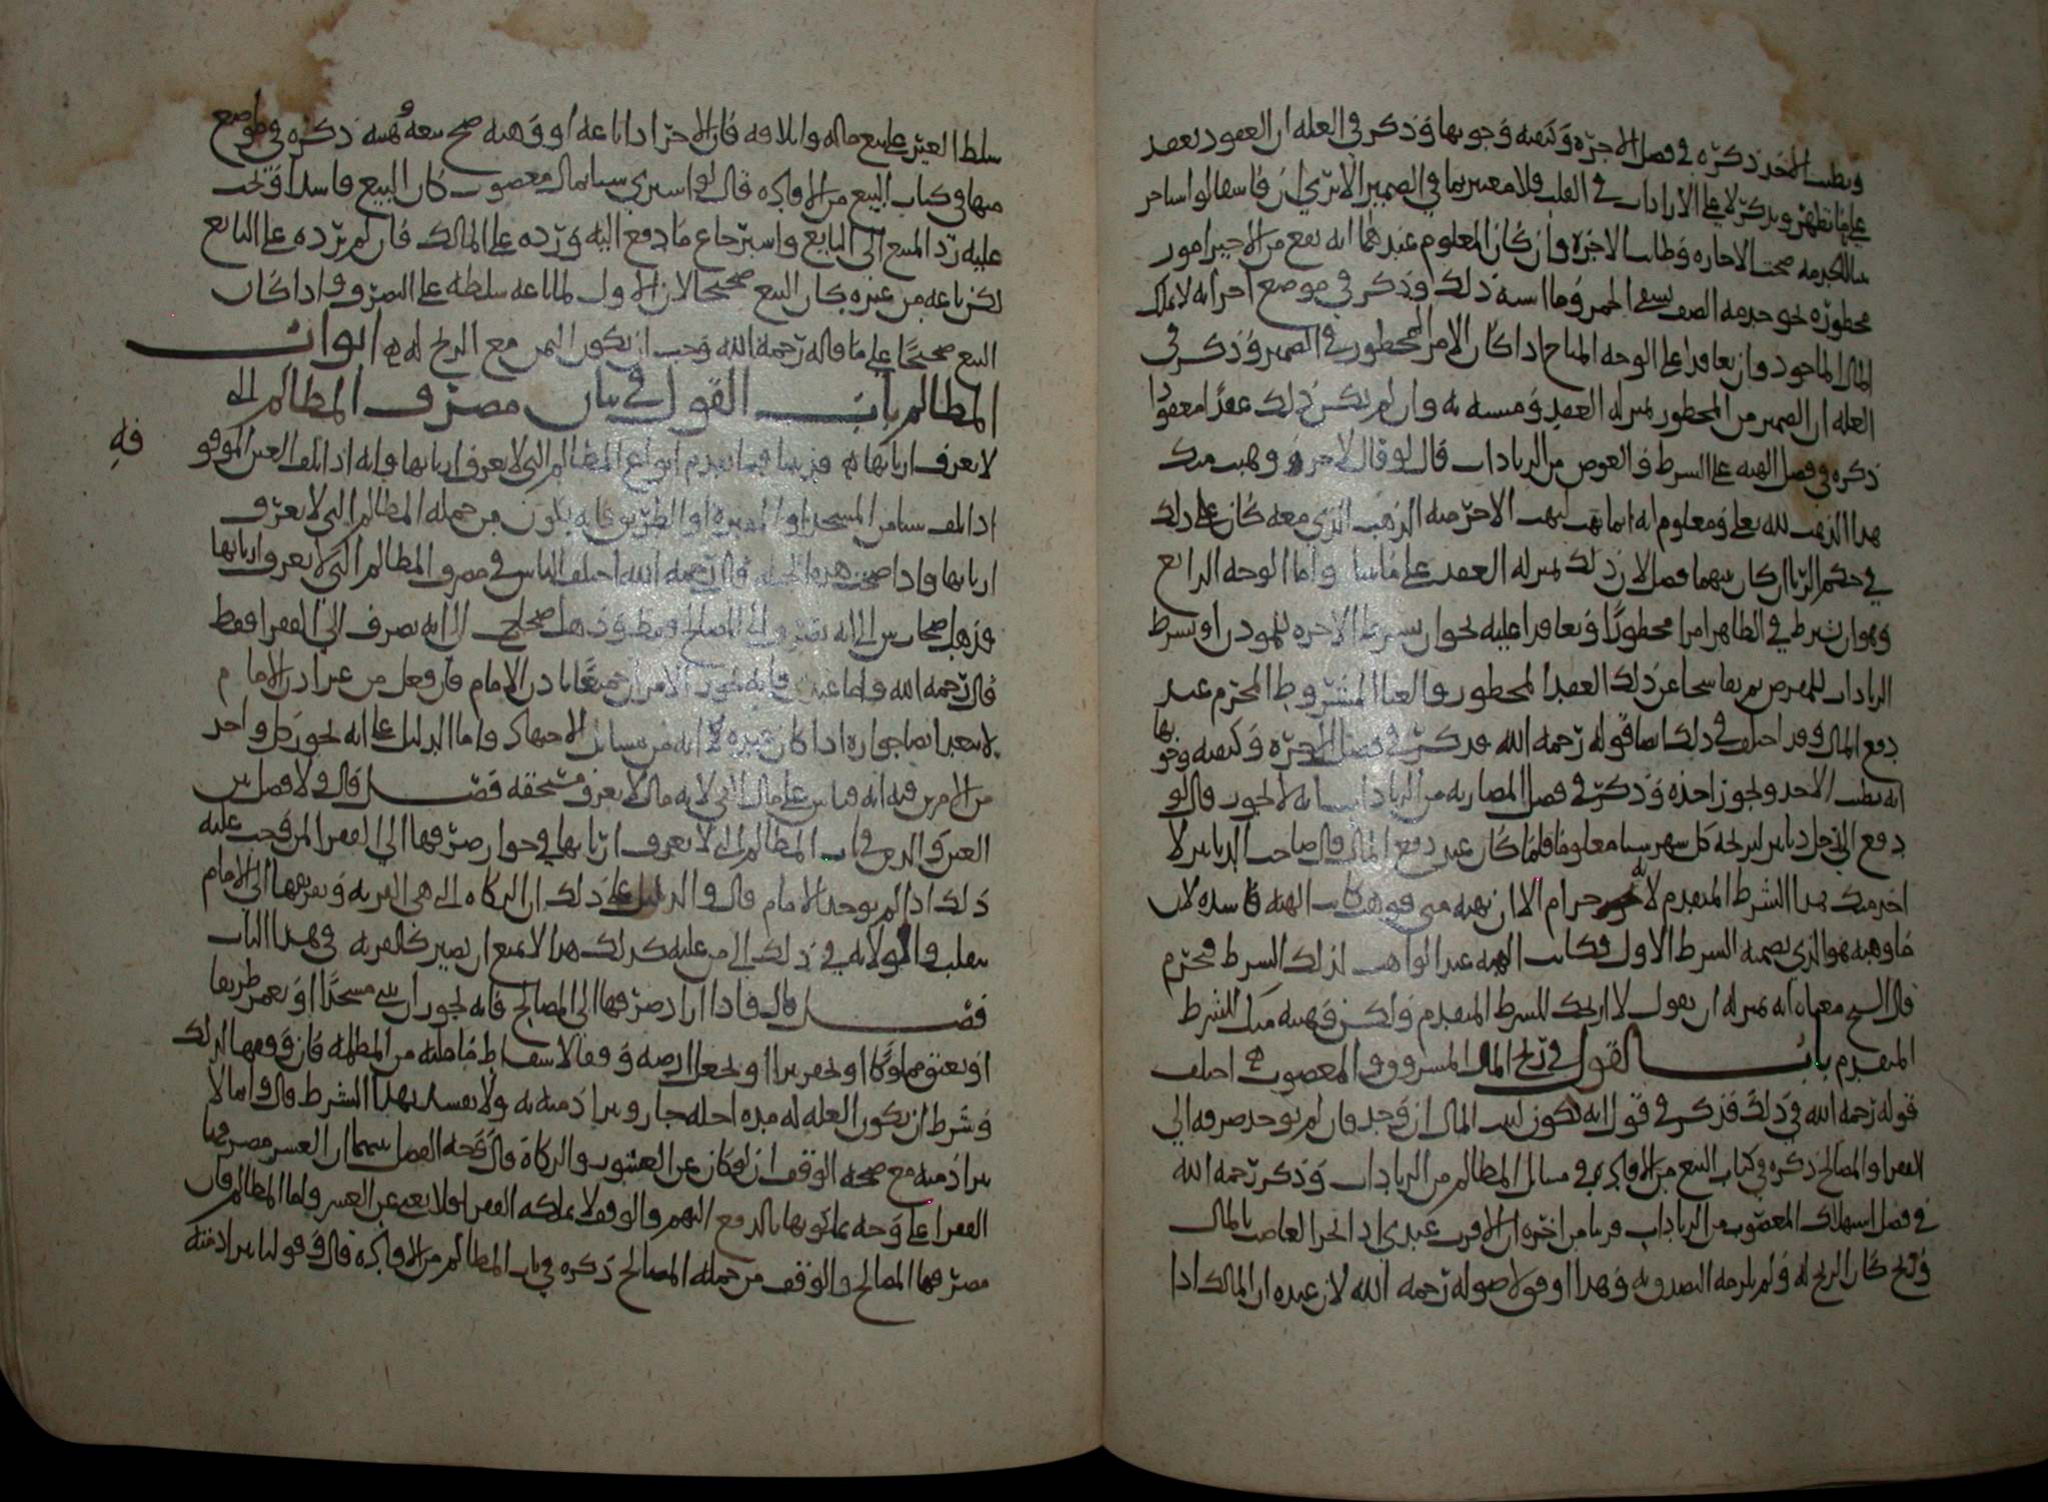 ويطيب الاخذ ذكره في فصل الاجرة وكيفية وجوبها وذكر في العلة ان العقود تعقد
على ما يظهر ويذكر لا على الارادات في القلب فلا معتبر بما في الضمير الا ترى ان فاسقا لو استاجر
للخدمة صحت الاجارة وطابت الاجرة وان كان المعلوم عندهما انه يقع من الاجير امور
محظورة نحو خدمة الضيف بسقي الخمر وما اشبه ذلك وذكر في موضع اخر انه لا يملك
المال الماخوذ وان تعاقدا على الوجه المباح اذا كان الامر المحظور في الضمير وذكر في
العلة ان الضمير من المحظور بمنزلة العقد ومشبه به وان لم يكن ذلك عقدا معقودا
ذكره في فصل الهبة على الشرط والعوض من الزيادات قال لو قال لاخر وهبت منك
هذا الذهب لله تعالى ومعلوم انه انما يهب ليهب الاخر منه الذهب الذي معه كان على ذلك
في حكم الربا ان كان بينهما فضل لان ذلك بمنزلة العقد على ما بينا واما الوجه الرابع
وهو ان شرط في الظاهر امرا محظورا وتعاقدا عليه نحو ان يشترط الاجرة للموذن او يشرط
الزيادات للمقرض ثم تفاسخا عن ذلك العقد المحظور والغيا المشروط المحرم عند
دفع المال وقد اختلف في ذلك ايضا قوله رحمه الله فذكر في فصل الاجرة وكيفية وجوبها
انه يطيب الاخذ ويجوز اخذه وذكر في فصل المضاربة من الزيادات انه لا يجوز قال لو
دفع الى رجل دنانير ليربحه كل شهر شيئا معلوما فلما كان عند دفع المال قال صاحب الدنانير لا
اخذ منك بهذا الشرط المتقدم لانه حرام الا ان تهبه مني فوهب كانت الهبة فاسدة لان
ما وهبه هو الذي تضمنه الشرط الاول فكانت الهبة عند الواهب لذلك الشرط محرم
قال الشيخ معناه انه بمنزلة ان يقول لا اربحك للشرط المتقدم ولكن وهبته منك للشرط
المتقدم باب القول في ربح المال المسروق والمغصوب اختلف
قوله رحمه الله في ذلك فذكر في قول انه تكون لبيت المال ان وجد وان لم يوجد صرفه الى
الفقرا والمصالح ذكره في كتاب البيع من الافادة وفي مسائل المظالم من الزيادات وذكر رحمه الله
في فصل استهلاك المغصوب من الزيادات قريبا من اخره ان الاقرب عندي اذا اتجر الغاصب بالمال
وربح كان الربح له ولم يلزمه التصدق به وهذا اوفق لاصوله رحمه الله لان عنده ان المالك اذا
سلط الغير على بيع ماله واتلافه فان الاخر اذا باعه او وهبه صح بيعه وهبته ذكره في مواضع
منها في كتاب البيع من الافادة قال لو اشترى شيئا بمال مغصوب كان البيع فاسدا وتجب
عليه رد المبيع الى البايع واسترجاع ما دفع اليه ورده على المالك فان لم يرده على البايع
لكن باعه من غيره كان البيع صحيحا لان الاول لما باعه سلطه على التصرف واذا كان
البيع صحيحا على ما قاله رحمه الله وجب ان يكون الثمن مع الربح له ابواب
المظالم باب القول في بيان مصرف المظالم التي
لا يعرف اربابها قد بينا فيما تقدم انواع المظالم التي لا يعرف اربابها وانه اذا تلف العين الموقوفة
اذا تلف شيئا من المسجد او المقبرة او الطريق فانه يكون من جملة المظالم التي لا يعرف
اربابها واذا صحت هذه الجملة قال رحمه الله اختلف الناس في مصرف المظالم التي لا يعرف اربابها
فذهب اصحاب ش الى انه تصرف الى المصالح فقط وذهب اصحاب ح الى انه يصرف الى الفقرا فقط
قال رحمه الله واما عندي فانه يجوز الامران جميعا باذن الامام فان فعل من غير اذن الامام
لا يبعد ايضا جوازه اذا كان تحريه لانه من مسائل الاجتهاد واما الدليل على انه يجوز كل واحد
من الامرين فيه انه قياس على مال اللقي لانه مال لا يعرف مستحقه فصل قال ولا فصل بين
العين والدين في باب المظالم التي لا يعرف اربابها في جواز صرفها الى الفقرا لمن وجب عليه
ذلك اذا لم يوجد الامام قال والدليل على ذلك ان الزكاة التي هي القربة وتفريقها الى الامام
ينقلب والولاية في ذلك الى من عليه كذلك هذا لا يمتنع ان يصير كالقربة في هذا الباب
فصل قال فاذا اراد صرفها الى المصالح فانه يجوز ان يبني مسجدا او يعمر طريقا
او يعتق مملوكا او يحفر بيرا او يجعل ارضه وقفا لاسقاط ما عليه من المظلمة فان وقفها لذلك
وشرط ان يكون الغلة له مدة اجله جاز وبرا ذمته به ولا يفسد بهذا الشرط قال وانما لا
يبرا ذمته مع صحة الوقف ان لو كان عن العشور والزكاة قال وجه الفصل بينهما ان العشر مصرفها
الفقرا على وجه يملكونها بالدفع اليهم والوقف لا يملكه الفقرا فلا يقع عن العشر واما المظالم فان
مصرفها المصالح والوقف من جملة المصالح ذكره في باب المظالم من الافادة قال وقولنا يبرا ذمته